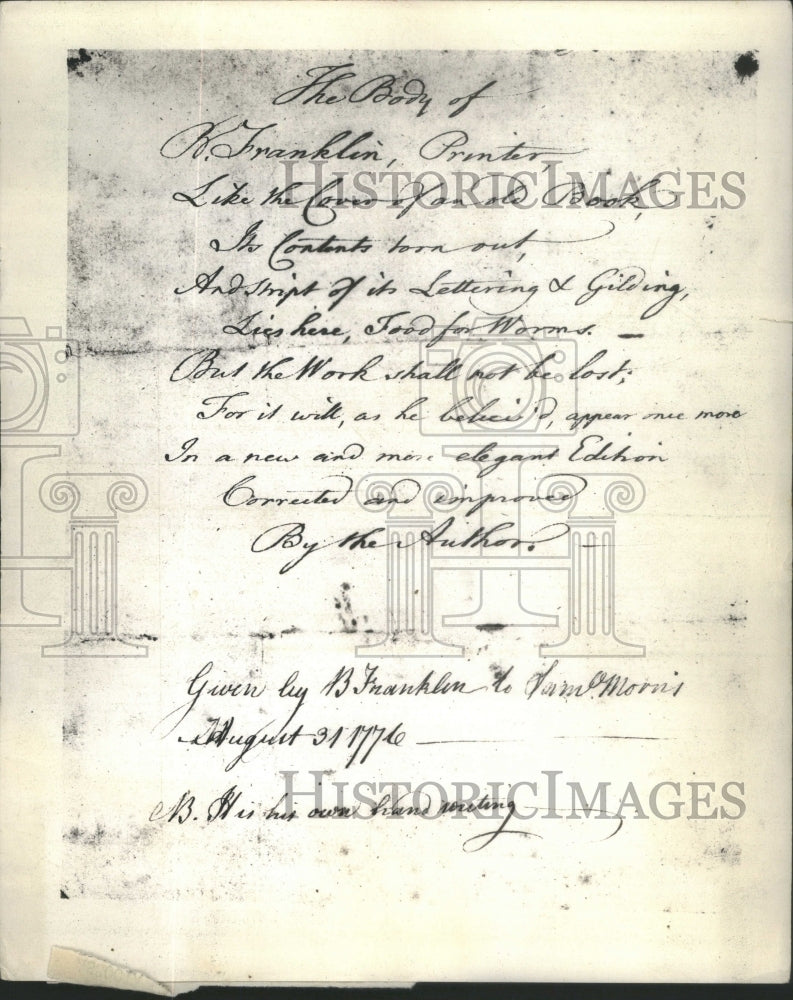 The Body of
B. Franklin, Printer,
Like the Cover of an old Book,
Its Contents torn out,
And stript of its Lettering & Gilding,
Lies here, Food for Worms.—
But the Work shall not be lost;
For it will, as he believ'd, appear once more
In a new and more elegant Edition
Corrected and improved
By the Author.—
Given by B Franklin to Saml. Morris
August 31 1776
NB. It is his own hand writing
HISTORICIMAGES
HISTORICIMAGES